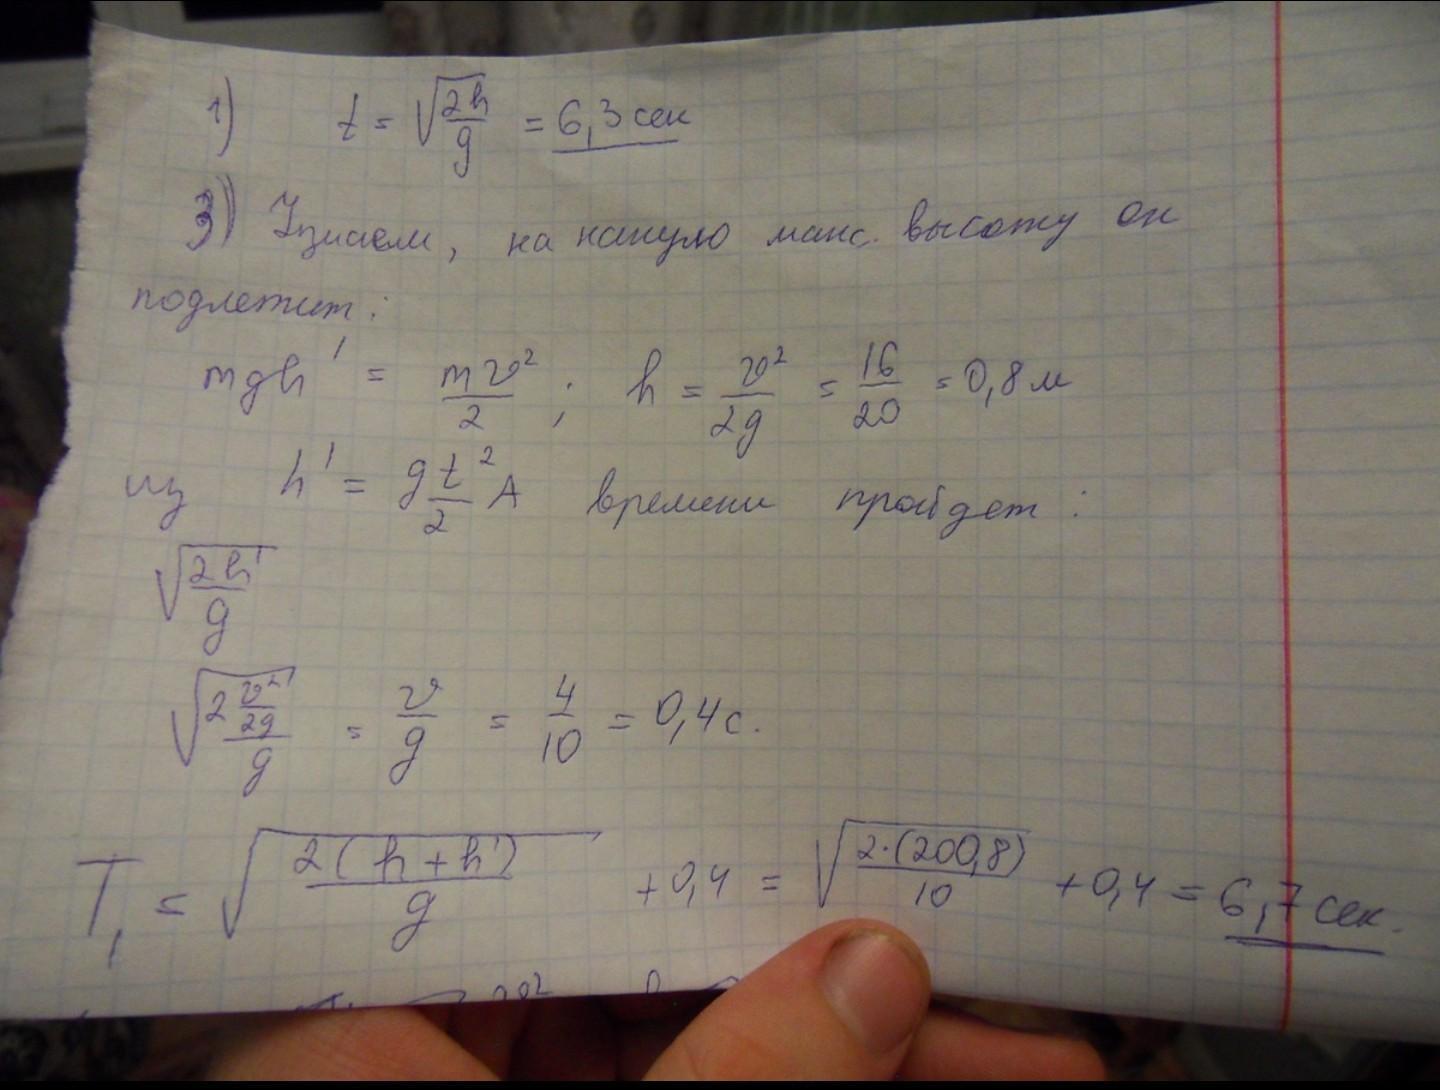 1) t = √(2h/g) = 6,3 сек
3) Узнаем, на какую макс. высоту он
подлетит:
mgh' = mv²/2 ; h = v²/2g = 16/20 = 0,8 м
из h' = gt²/2 А времени пройдет:
√(2h'/g)
√(2 v²/2g / g) = v/g = 4/10 = 0,4 с.
T₁ = √(2(h+h')/g) + 0,4 = √(2·(200,8)/10) + 0,4 = 6,7 сек.